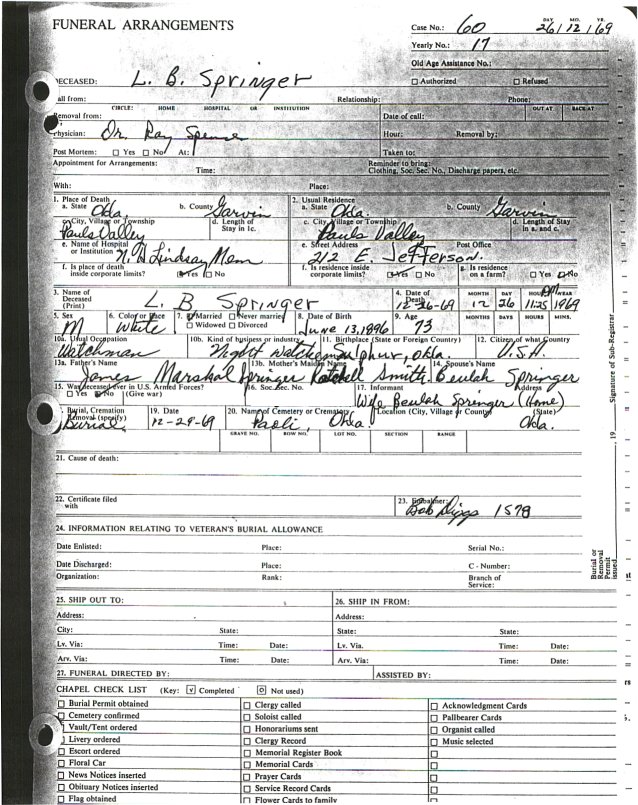 FUNERAL ARRANGEMENTS
Case No.: 60 DAY MO. YR. 26/12/69
Yearly No.: 17
Old Age Assistance No.:
DECEASED: L. B. Springer ☐ Authorized ☐ Refused
Call from: Relationship: Phone:
CIRCLE: HOME HOSPITAL OR INSTITUTION OUT AT BACK AT
Removal from: Date of call:
Physician: Dr. Ray Spense Hour: Removal by:
Post Mortem: ☐ Yes ☐ No At: Taken to:
Appointment for Arrangements: Reminder to bring:
Time: Clothing, Soc. Sec. No., Discharge papers, etc.
With: Place:
1. Place of Death 2. Usual Residence
a. State Okla. b. County Garvin a. State Okla. b. County Garvin
c. City, Village or Township Pauls Valley d. Length of Stay in 1c. c. City, Village or Township Pauls Valley d. Length of Stay in a. and c.
e. Name of Hospital or Institution W. H Lindsay Mem e. Street Address 212 E. Jefferson. Post Office
f. Is place of death inside corporate limits? ☑ Yes ☐ No f. Is residence inside corporate limits? ☑ Yes ☐ No g. Is residence on a farm? ☐ Yes ☑ No
3. Name of Deceased (Print) L. B Springer 4. Date of Death 12-26-69 MONTH 12 DAY 26 HOUR 11:25 PM YEAR 1969
5. Sex M 6. Color or Race White 7. ☑ Married ☐ Never married ☐ Widowed ☐ Divorced 8. Date of Birth June 13, 1896 9. Age 73 MONTHS DAYS HOURS MINS.
10a. Usual Occupation Watchman 10b. Kind of business or industry Night Watchman 11. Birthplace (State or Foreign Country) Sulphur, Okla. 12. Citizen of what Country U.S.A.
13a. Father's Name James Marshal Springer 13b. Mother's Maiden Name Smith 14. Spouse's Name Beulah Springer
15. Was deceased ever in U.S. Armed Forces? ☐ Yes ☑ No (Give war) 16. Soc. Sec. No. 17. Informant Wife Beulah Springer Address (Home)
Burial, Cremation Removal (specify) Burial 19. Date 12-29-69 20. Name of Cemetery or Crematory Paoli, Okla. Location (City, Village or County) (State) Okla.
GRAVE NO. ROW NO. LOT NO. SECTION RANGE
21. Cause of death:
22. Certificate filed with 23. Embalmer: Bob Diggs 1578
24. INFORMATION RELATING TO VETERAN'S BURIAL ALLOWANCE
Date Enlisted: Place: Serial No.:
Date Discharged: Place: C - Number:
Organization: Rank: Branch of Service:
25. SHIP OUT TO: 26. SHIP IN FROM:
Address: Address:
City: State: State: State:
Lv. Via: Time: Date: Lv. Via: Time: Date:
Arv. Via: Time: Date: Arv. Via: Time: Date:
27. FUNERAL DIRECTED BY: ASSISTED BY:
CHAPEL CHECK LIST (Key: ☑ Completed ⊡ Not used)
☐ Burial Permit obtained ☐ Clergy called ☐ Acknowledgment Cards
☐ Cemetery confirmed ☐ Soloist called ☐ Pallbearer Cards
☐ Vault/Tent ordered ☐ Honorariums sent ☐ Organist called
☐ Livery ordered ☐ Clergy Record ☐ Music selected
☐ Escort ordered ☐ Memorial Register Book ☐
☐ Floral Car ☐ Memorial Cards ☐
☐ News Notices inserted ☐ Prayer Cards ☐
☐ Obituary Notices inserted ☐ Service Record Cards ☐
☐ Flag obtained ☐ Flower Cards to family ☐
Burial or Removal Permit issued 19 Signature of Sub-Registrar